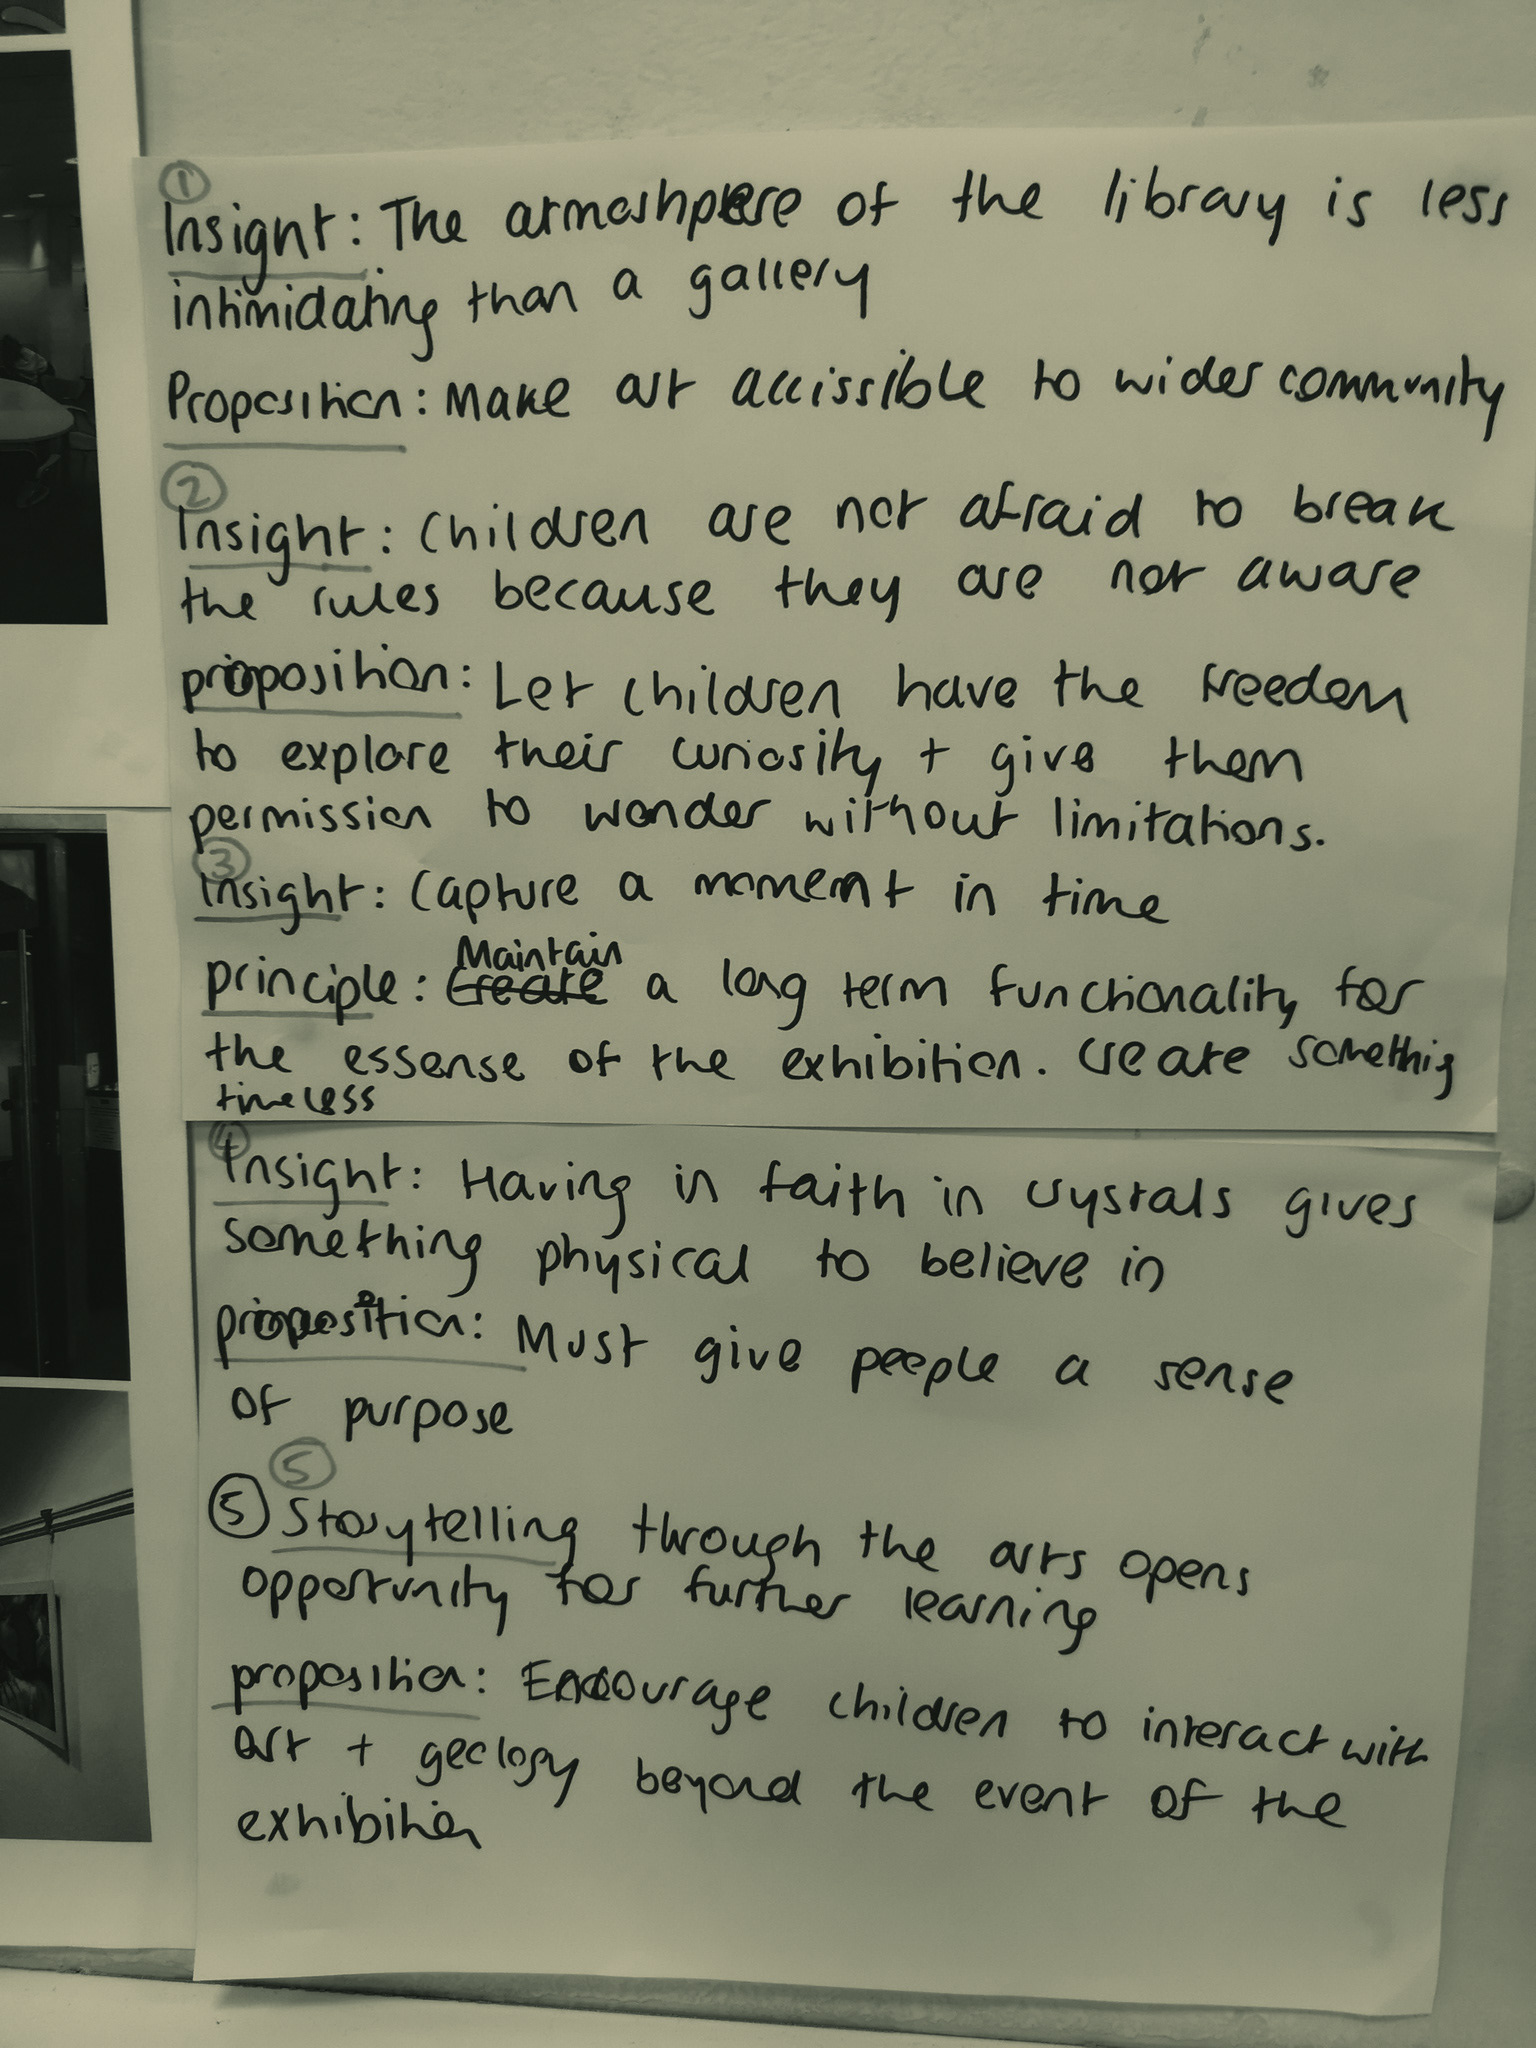 ①
Insight: The atmoshpere of the library is less
intimidating than a gallery
Proposition: Make art accissible to wider community
②
Insight: Children are not afraid to break
the rules because they are not aware
proposition: Let children have the freedom
to explore their curiosity + give them
permission to wonder without limitations.
③
Insight: Capture a moment in time
Maintain
principle: Create a long term functionality for
the essense of the exhibition. Create something
timeless
④
Insight: Having in faith in crystals gives
something physical to believe in
proposition: Must give people a sense
of purpose
⑤
⑤ Storytelling through the arts opens
opportunity for further learning
proposition: Encourage children to interact with
art + geology beyond the event of the
exhibition